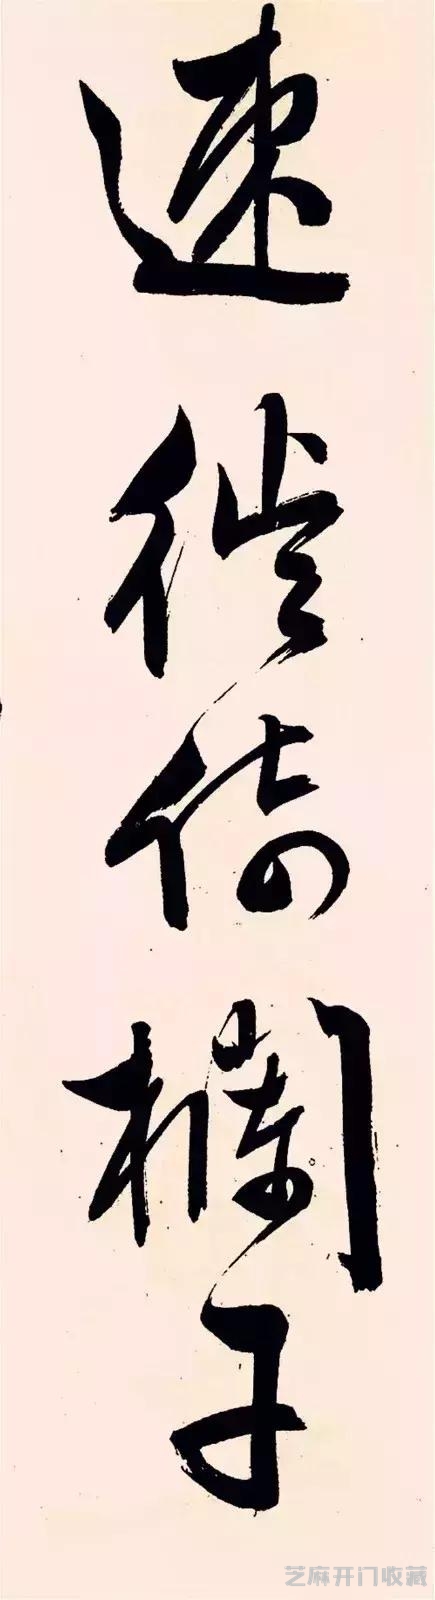 速徙倚欄干
芝麻开门收藏